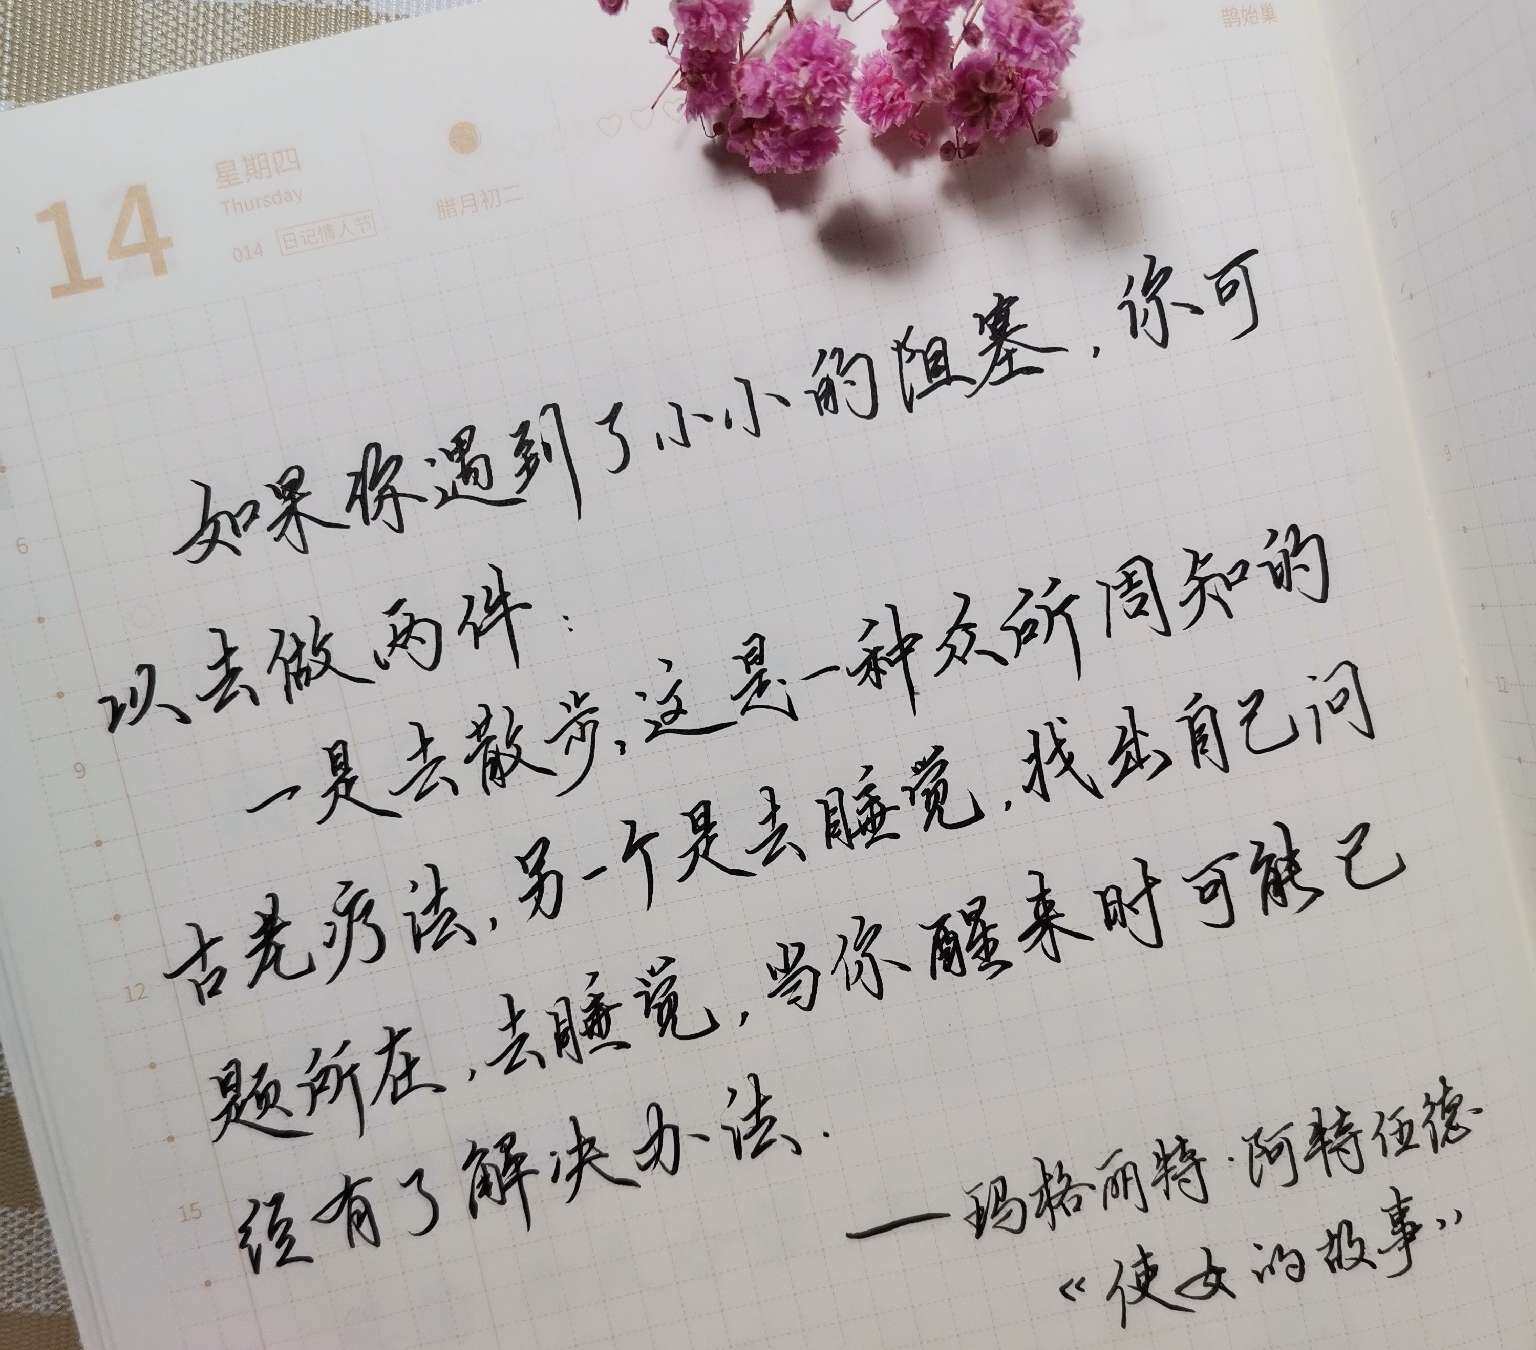 鹊始巢
14
星期四
Thursday
014 日记情人节
腊月初二
如果你遇到了小小的阻塞，你可
以去做两件：
一是去散步，这是一种众所周知的
古老疗法，另一个是去睡觉，找出自己问
题所在，去睡觉，当你醒来时可能已
经有了解决办法．
——玛格丽特·阿特伍德
《使女的故事》
6
9
12
15
6
9
12